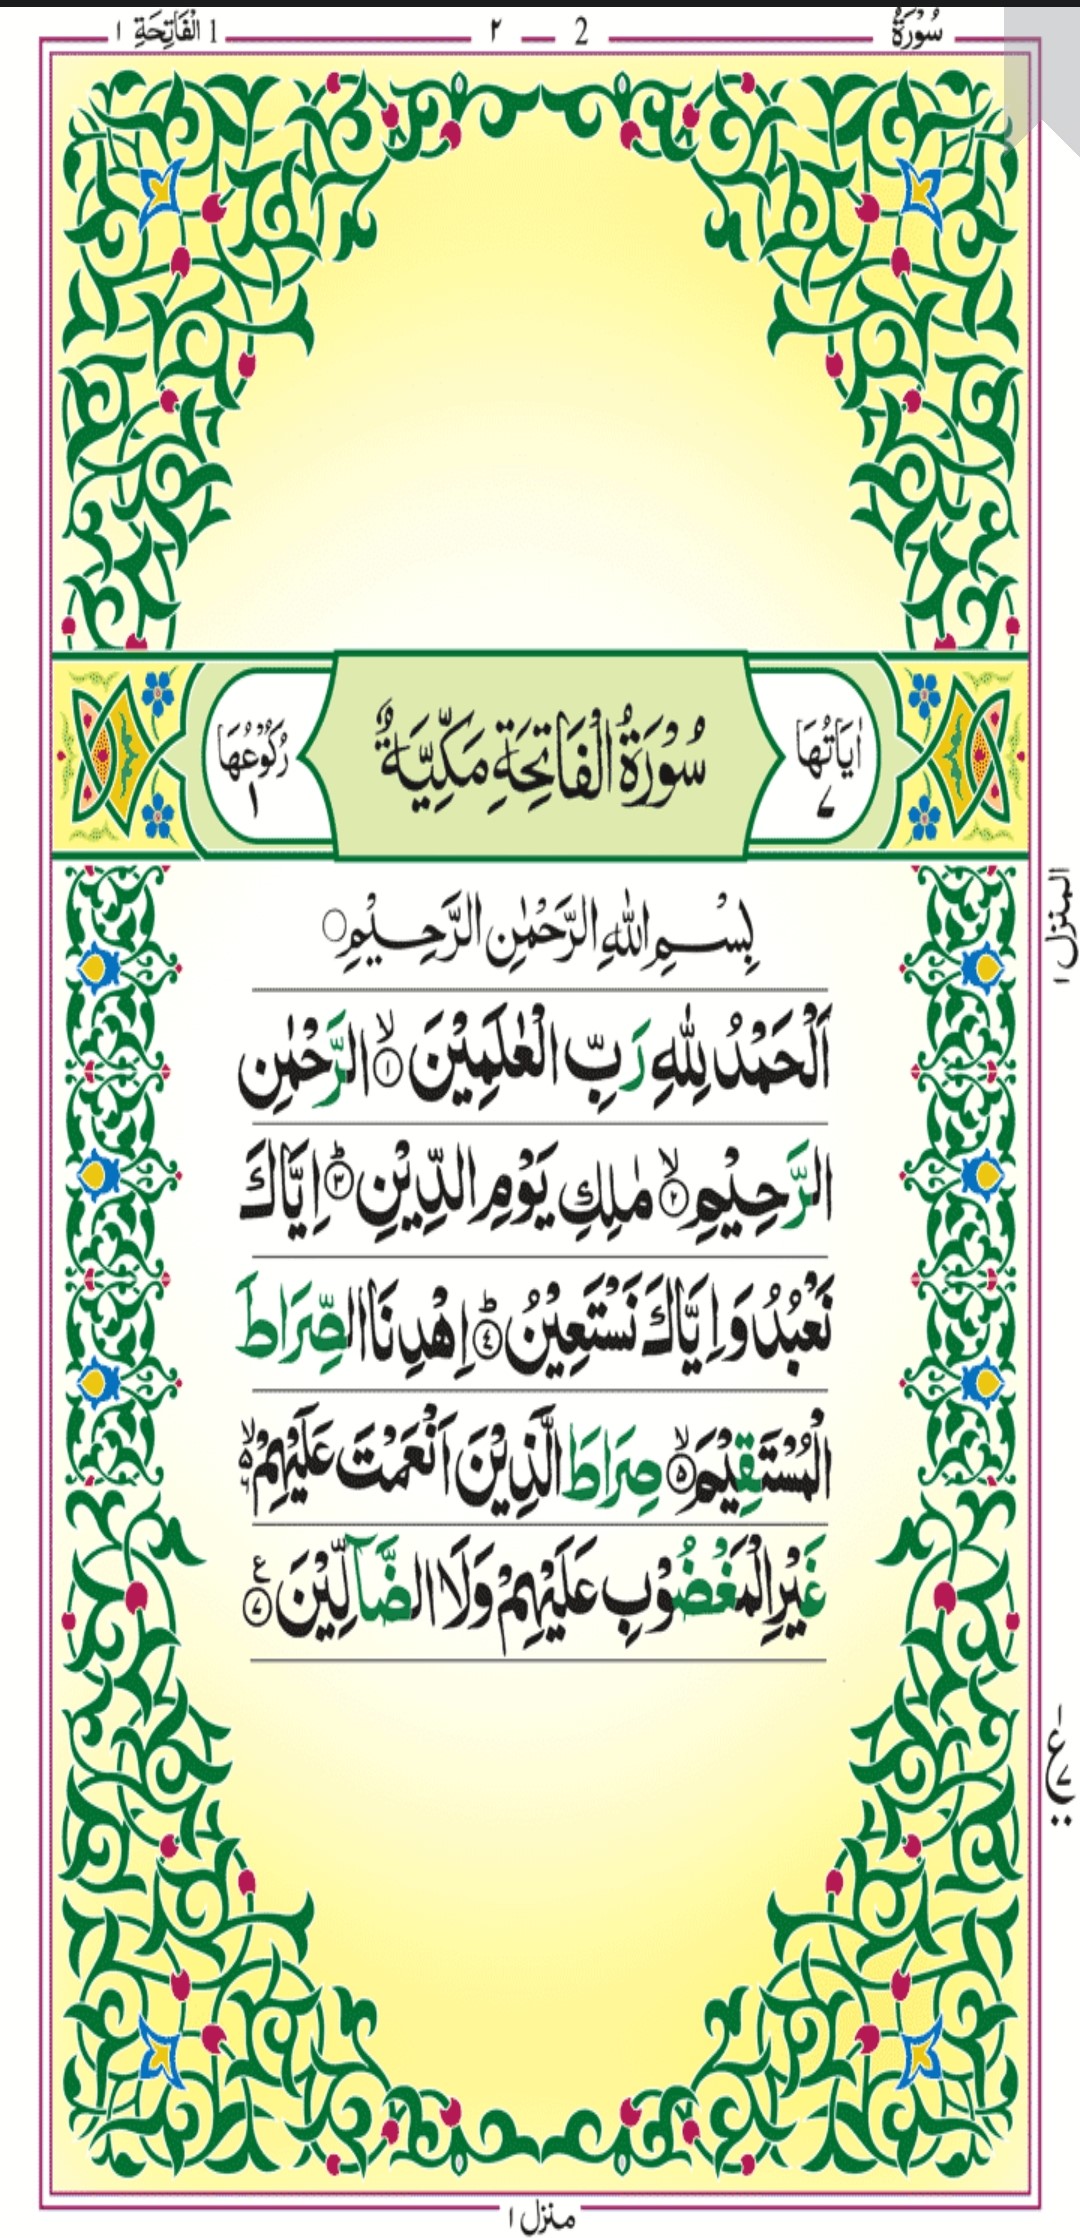 سُوْرَةُ
2 — ٢
1 الْفَاتِحَةِ ١
اٰيَاتُهَا ٧
سُوْرَةُ الْفَاتِحَةِ مَكِّيَّةٌ
رُكُوْعُهَا ١
بِسْمِ اللّٰهِ الرَّحْمٰنِ الرَّحِيْمِ ۝
اَلْحَمْدُ لِلّٰهِ رَبِّ الْعٰلَمِيْنَ ۙ ١ الرَّحْمٰنِ
الرَّحِيْمِ ۙ ٢ مٰلِكِ يَوْمِ الدِّيْنِ ؕ ٣ اِيَّاكَ
نَعْبُدُ وَ اِيَّاكَ نَسْتَعِيْنُ ؕ ٤ اِهْدِنَا الصِّرَاطَ
الْمُسْتَقِيْمَ ۙ ٥ صِرَاطَ الَّذِيْنَ اَنْعَمْتَ عَلَيْهِمْ ۙ ٦
غَيْرِ الْمَغْضُوْبِ عَلَيْهِمْ وَلَا الضَّآلِّيْنَ ٧ ع
المنزل ١
١ ع ٧
منزل ١